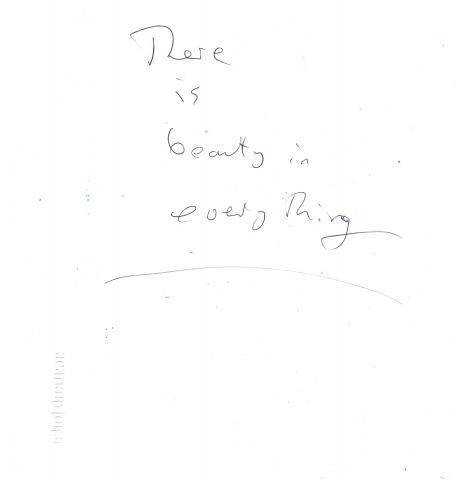 There
is
beauty in
everything